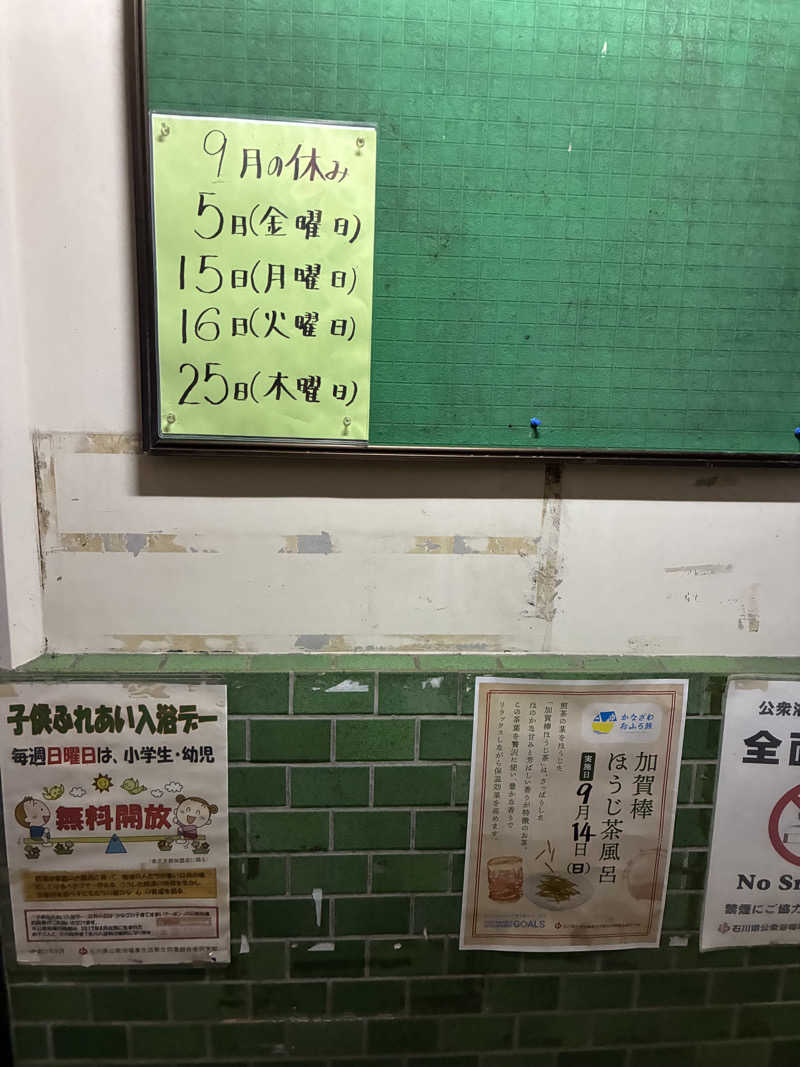 9月の休み
5日(金曜日)
15日(月曜日)
16日(火曜日)
25日(木曜日)
子供ふれあい入浴デー
毎週日曜日は、小学生・幼児
無料開放
かなざわ
おふろ旅
加賀棒
ほうじ茶風呂
実施日
9月14日(日)
煎茶の茎をほうじた
「加賀棒ほうじ茶」は、さっぱりした
ほのかな甘みと芳ばしい香りが特徴のお茶。
この茶葉を贅沢に使い、豊かな香りで
リラックスしながら保温効果を高めます。
GOALS
公衆浴
全面
No Sm
禁煙にご協力
石川県公衆浴場